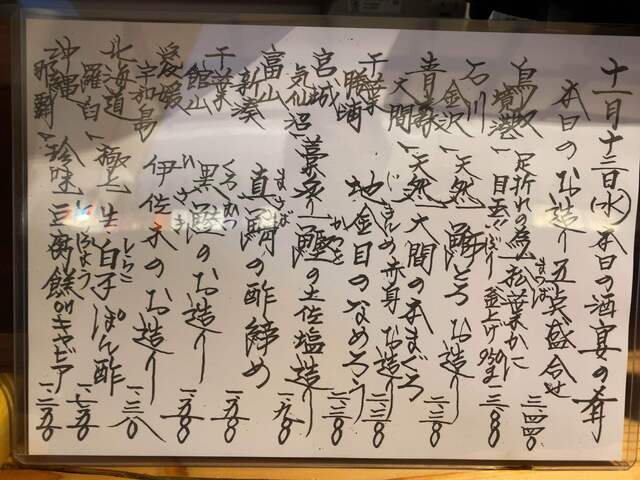 十一月十三日(水)本日の酒宴の肴
本日のお造り五点盛合せ 三、四四〇
鳥取 境港 足折れの為!松葉かに
まつば
目玉!! 釜上げ 一、三八〇
石川 金沢 天然 鰤とろお造り 二、三八〇
青森 大間 天然大間の本まぐろ
赤身お造り 二、三八〇
千葉 勝浦 地金目のなめろう 二、三八〇
じきんめ
宮城 気仙沼 藁炙り鰹の土佐塩造り 一、九八〇
かつお
富山 新湊 真鯖の酢締め 一、五八〇
まさば
千葉 館山 黒鯥のお造り 一、五八〇
くろむつ
愛媛 宇和島 伊佐木のお造り 一、三八〇
いさき
北海道 羅臼 極上生白子ぽん酢 一、七五〇
しらこ
沖縄 那覇 珍味 豆腐餻onキャビア 一、二五〇
とうふよう